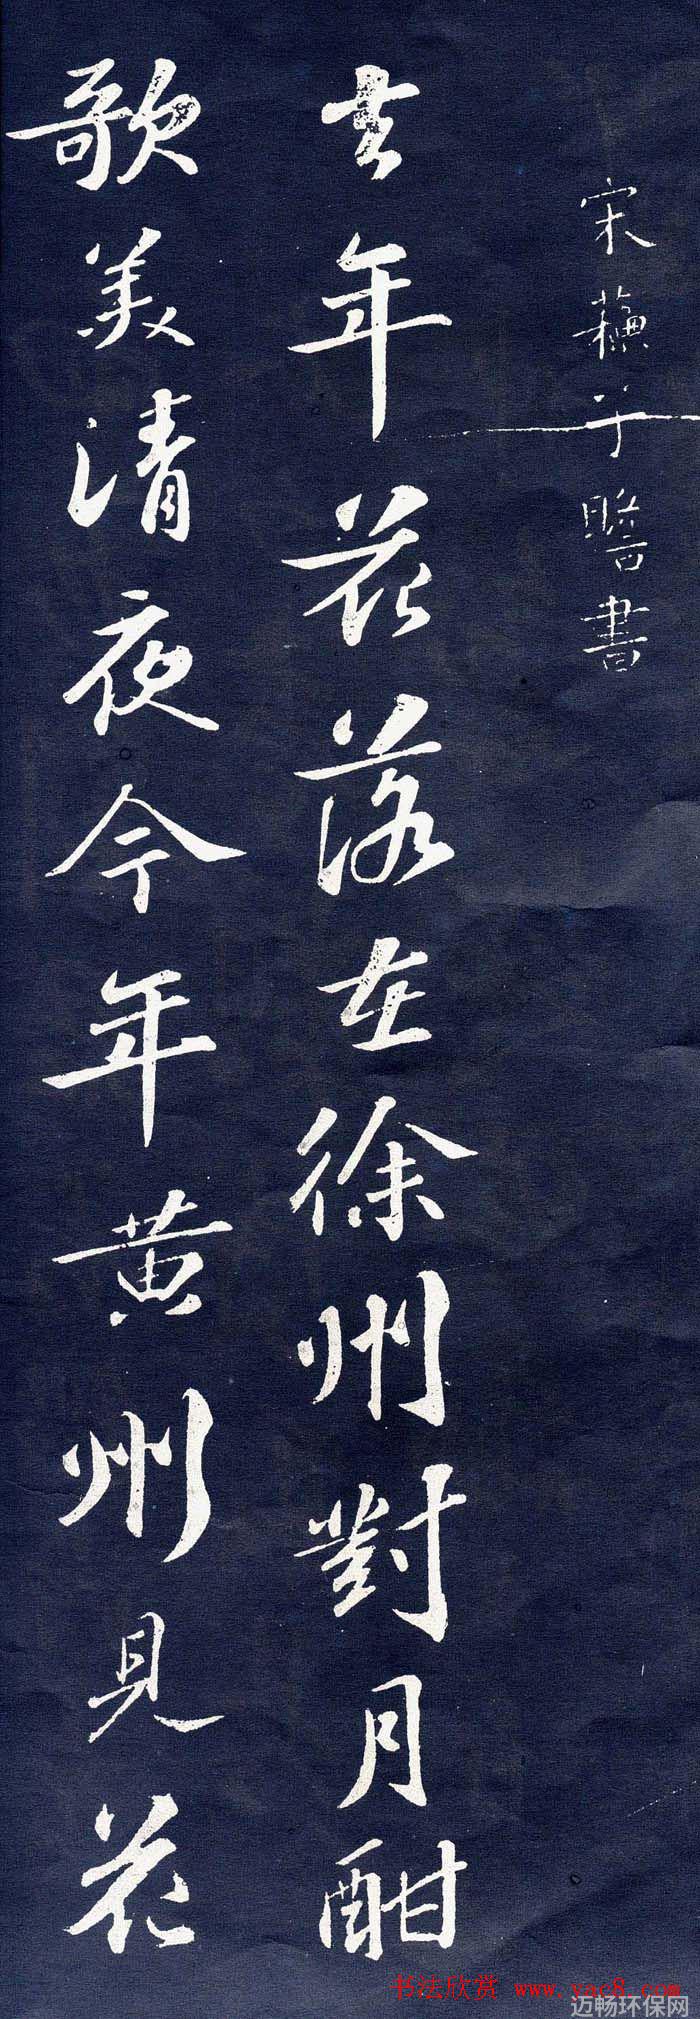 宋蘓子瞻書
去年花落在徐州對月酣
歌美清夜今年黄州見花
书法欣赏 www.yac8.com
迈畅环保网